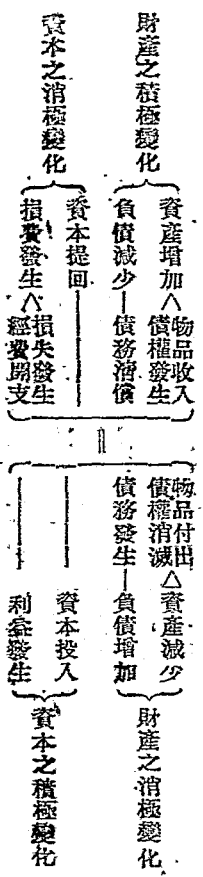 財產之積極變化
資產增加
物品收入
債權發生
負債減少—債務淸償
資本之消極變化
資本提回
損費發生
損失發生
經費開支
＝
物品付出
債權消滅
資產減少
債務發生—負債增加
財產之消極變化
資本投入
利益發生
資本之積極變化